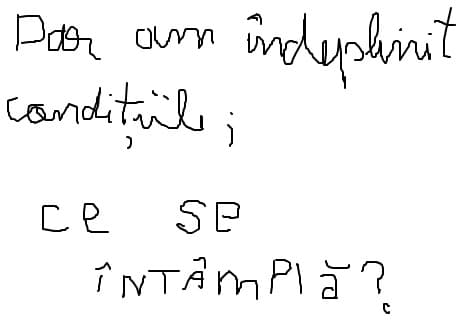 Dar am îndeplinit
condițiile;
CE SE
ÎNTÂMPlă?